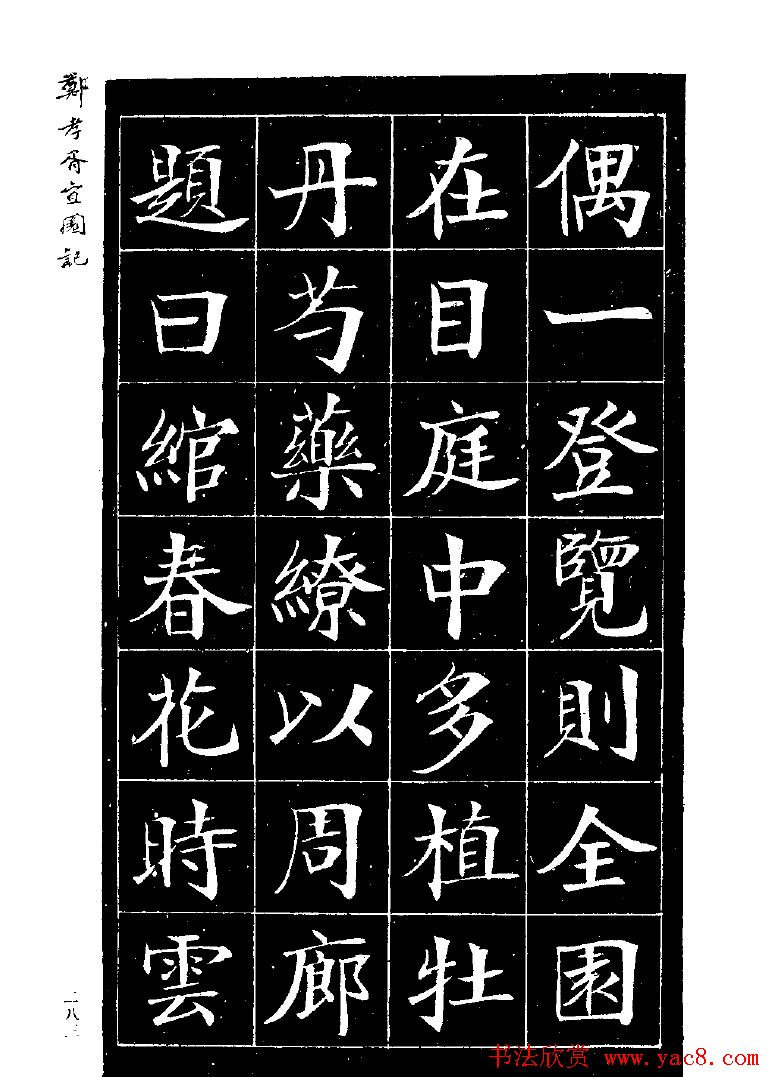 鄭孝胥宜園記
偶一登覽則全園
在目庭中多植牡
丹芍藥繚以周廊
題曰綰春花時雲
二八三
书法欣赏 www.yac8.com